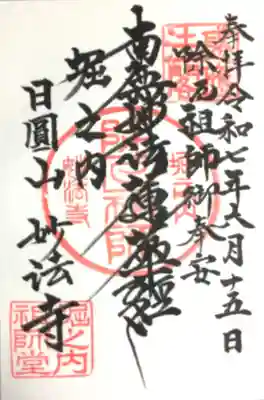 奉拝 令和七年六月十五日
除厄祖師御奉安
南無妙法蓮華経
堀之内
日圓山 妙法寺
除厄祖師
妙法寺
堀之内
祖師堂